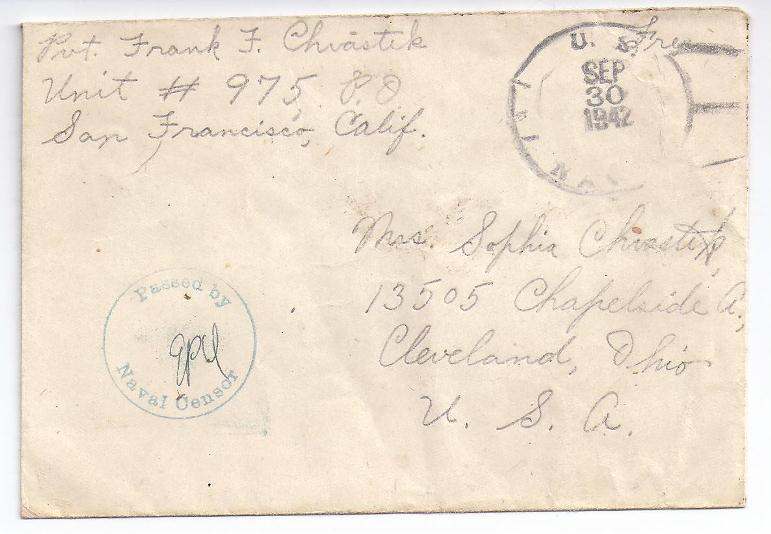 Pvt. Frank F. Chvastek
Unit # 975 P.O
San Francisco, Calif.
Free
U. S.
SEP
30
1942
NAVY
Mrs. Sophia Chvastek,
13505 Chapelside A,
Cleveland, Ohio
U. S. A.
Passed by
Naval Censor